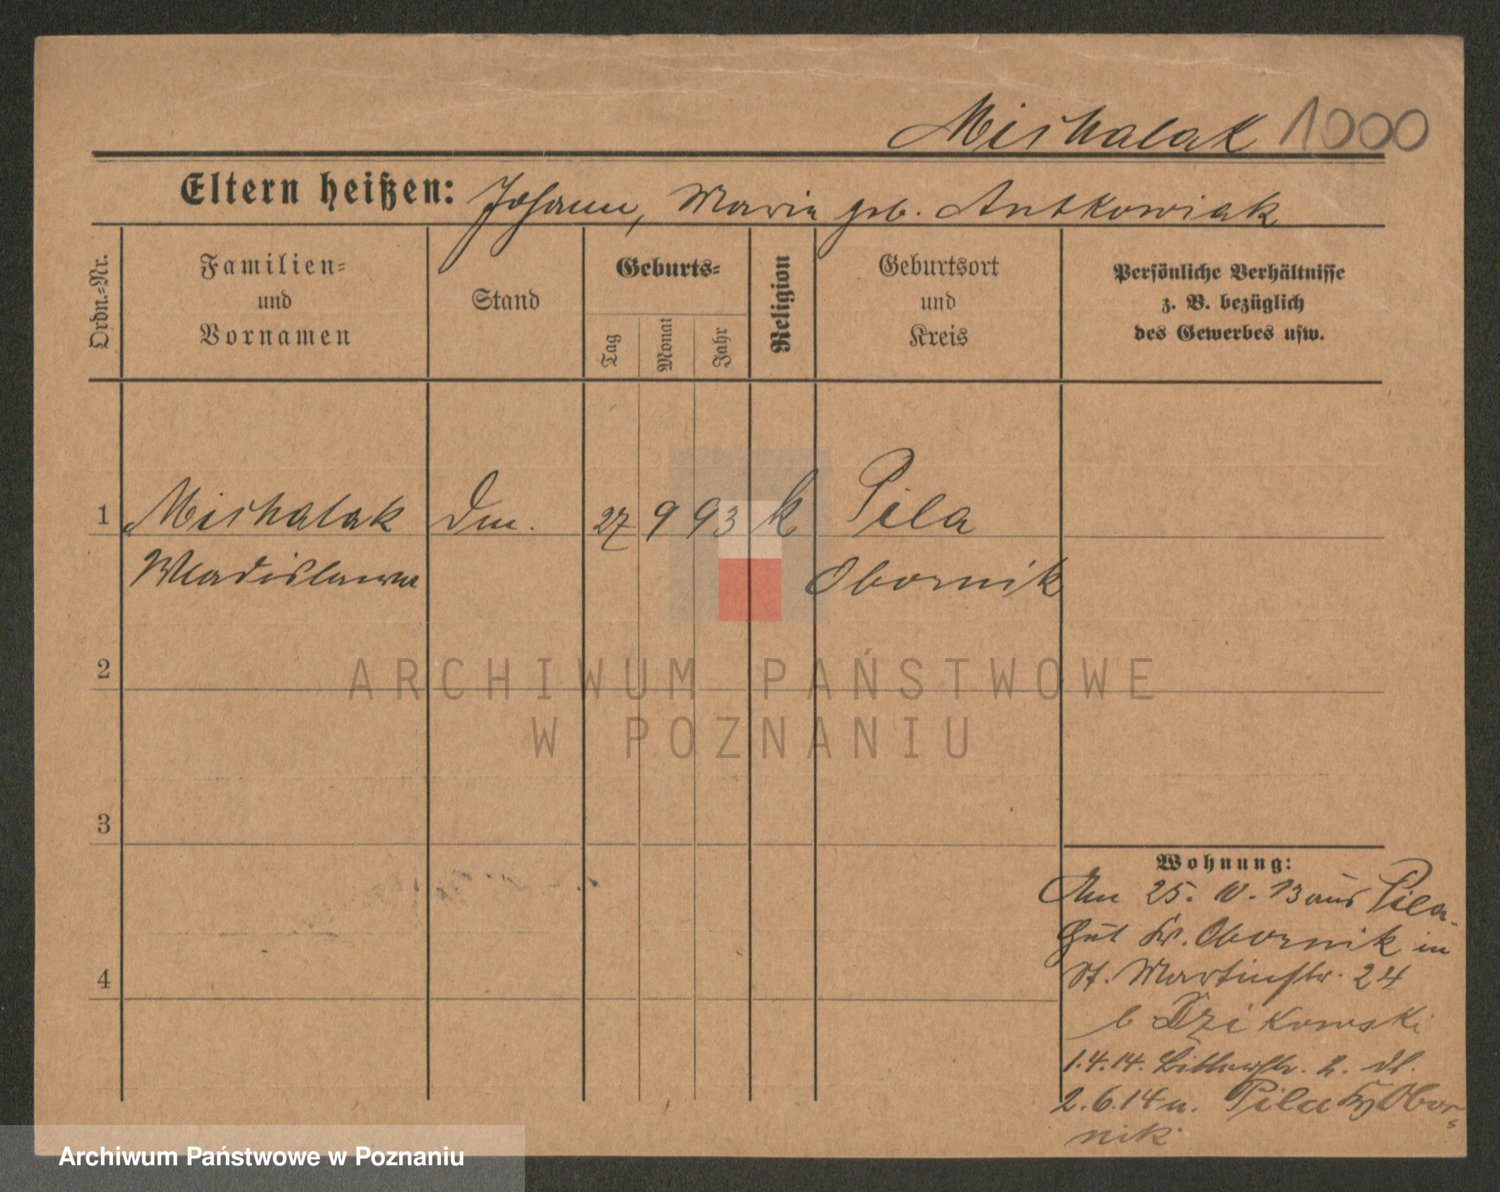 Michalak 1000
Eltern heißen: Johann, Maria geb. Antkowiak
Ordn.=Nr.
Familien=
und
Vornamen
Stand
Geburts=
Tag
Monat
Jahr
Religion
Geburtsort
und
Kreis
Persönliche Verhältnisse
z. B. bezüglich
des Gewerbes usw.
1 Michalak Dm. 27 9 93 k Pila
Wladislawa Obornik
2
ARCHIWUM PAŃSTWOWE
W POZNANIU
3
4
Wohnung:
Am 25. 10. 13 aus Pila-
Gut Kr. Obornik in
St. Martinstr. 24
b
1.4.14.
2.6.14 n. Pila Kr Obor=
nik.
Archiwum Państwowe w Poznaniu